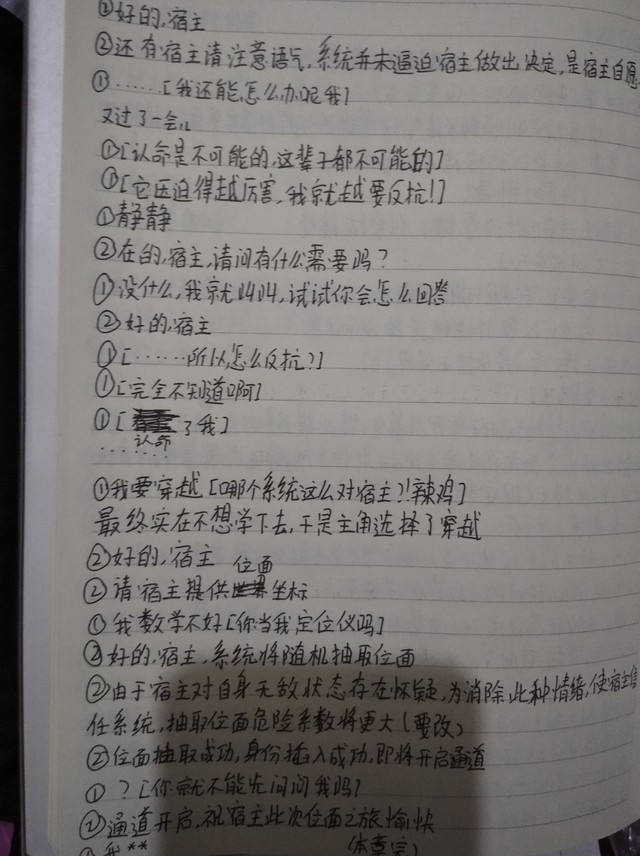 ②好的,宿主
②还有宿主请注意语气,系统并未逼迫宿主做出决定,是宿主自愿
①……[我还能怎么办呢我]
又过了一会儿
①[认命是不可能的,这辈子都不可能的]
①[它压迫得越厉害,我就越要反抗!]
①静静
②在的,宿主,请问有什么需要吗?
①没什么,我就叫叫,试试你会怎么回答
②好的,宿主
①[……所以怎么反抗?]
①[完全不知道啊]
①[认命了我]
……
①我要穿越[哪个系统这么对宿主?!辣鸡]
最终实在不想学下去,于是主角选择了穿越
②好的,宿主
②请宿主提供位面坐标
①我数学不好[你当我定位仪吗]
②好的,宿主,系统将随机抽取位面
②由于宿主对自身无敌状态存在怀疑,为消除此种情绪,使宿主信
任系统,抽取位面危险系数将更大(要改)
②位面抽取成功,身份插入成功,即将开启通道
①?[你就不能先问问我吗?
②通道开启,祝宿主此次位面之旅愉快
①我**
(本章完)